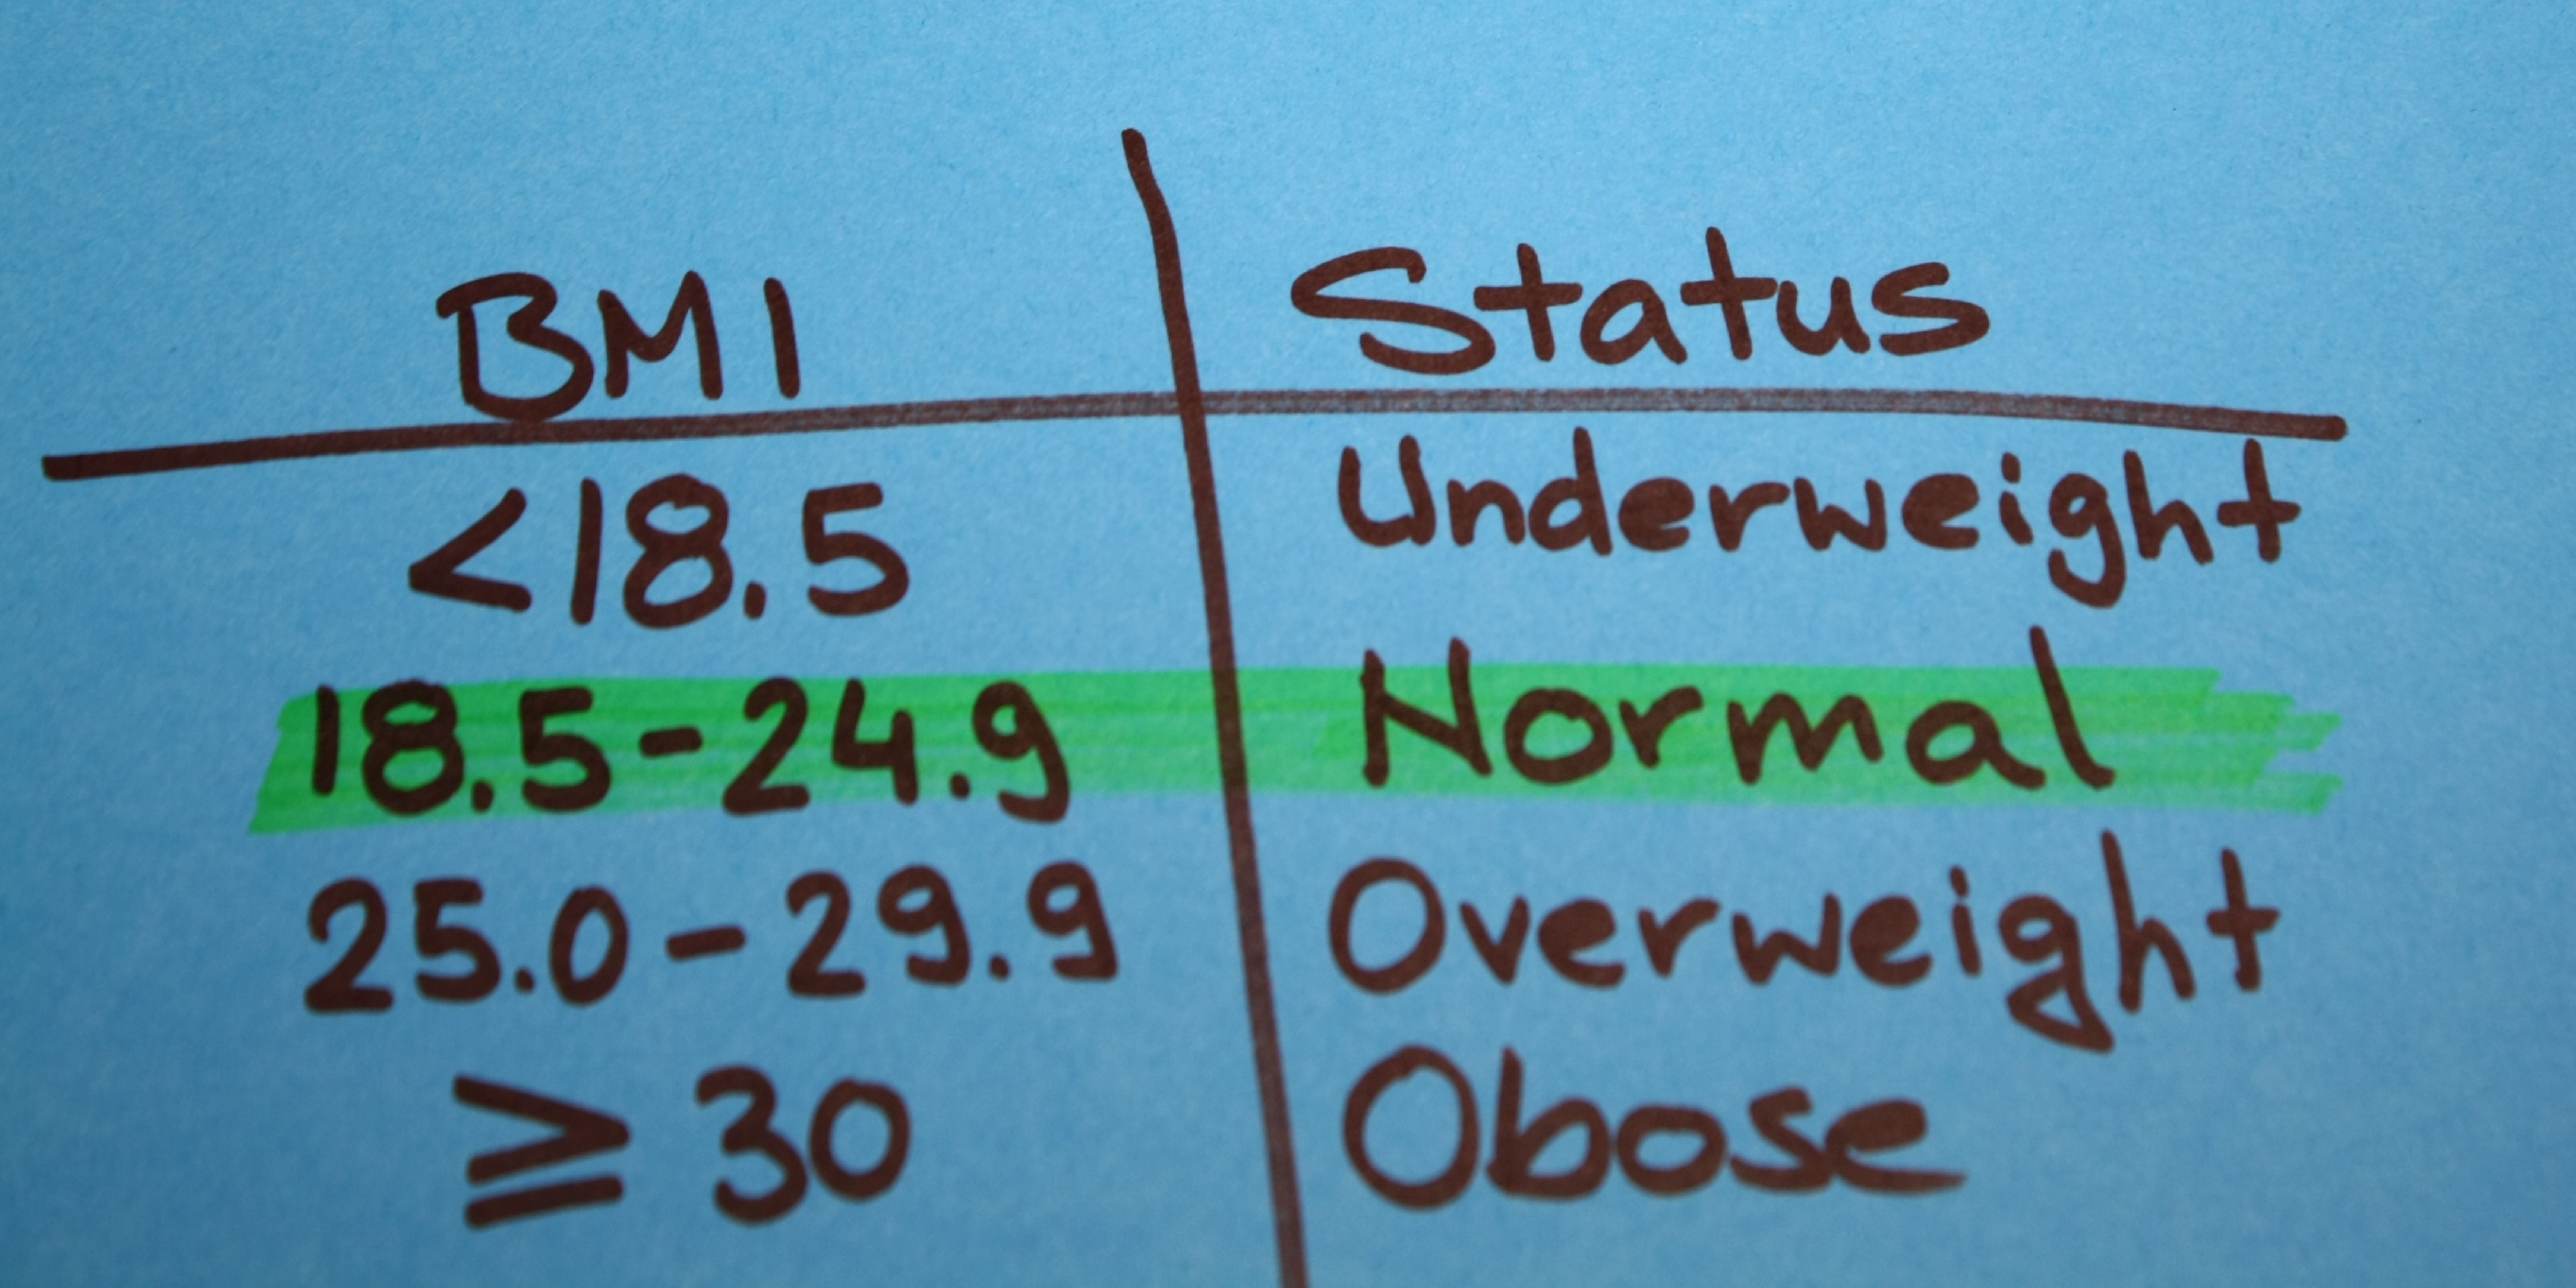 BMI Status
<18.5 Underweight
18.5-24.9 Normal
25.0-29.9 Overweight
≥ 30 Obose